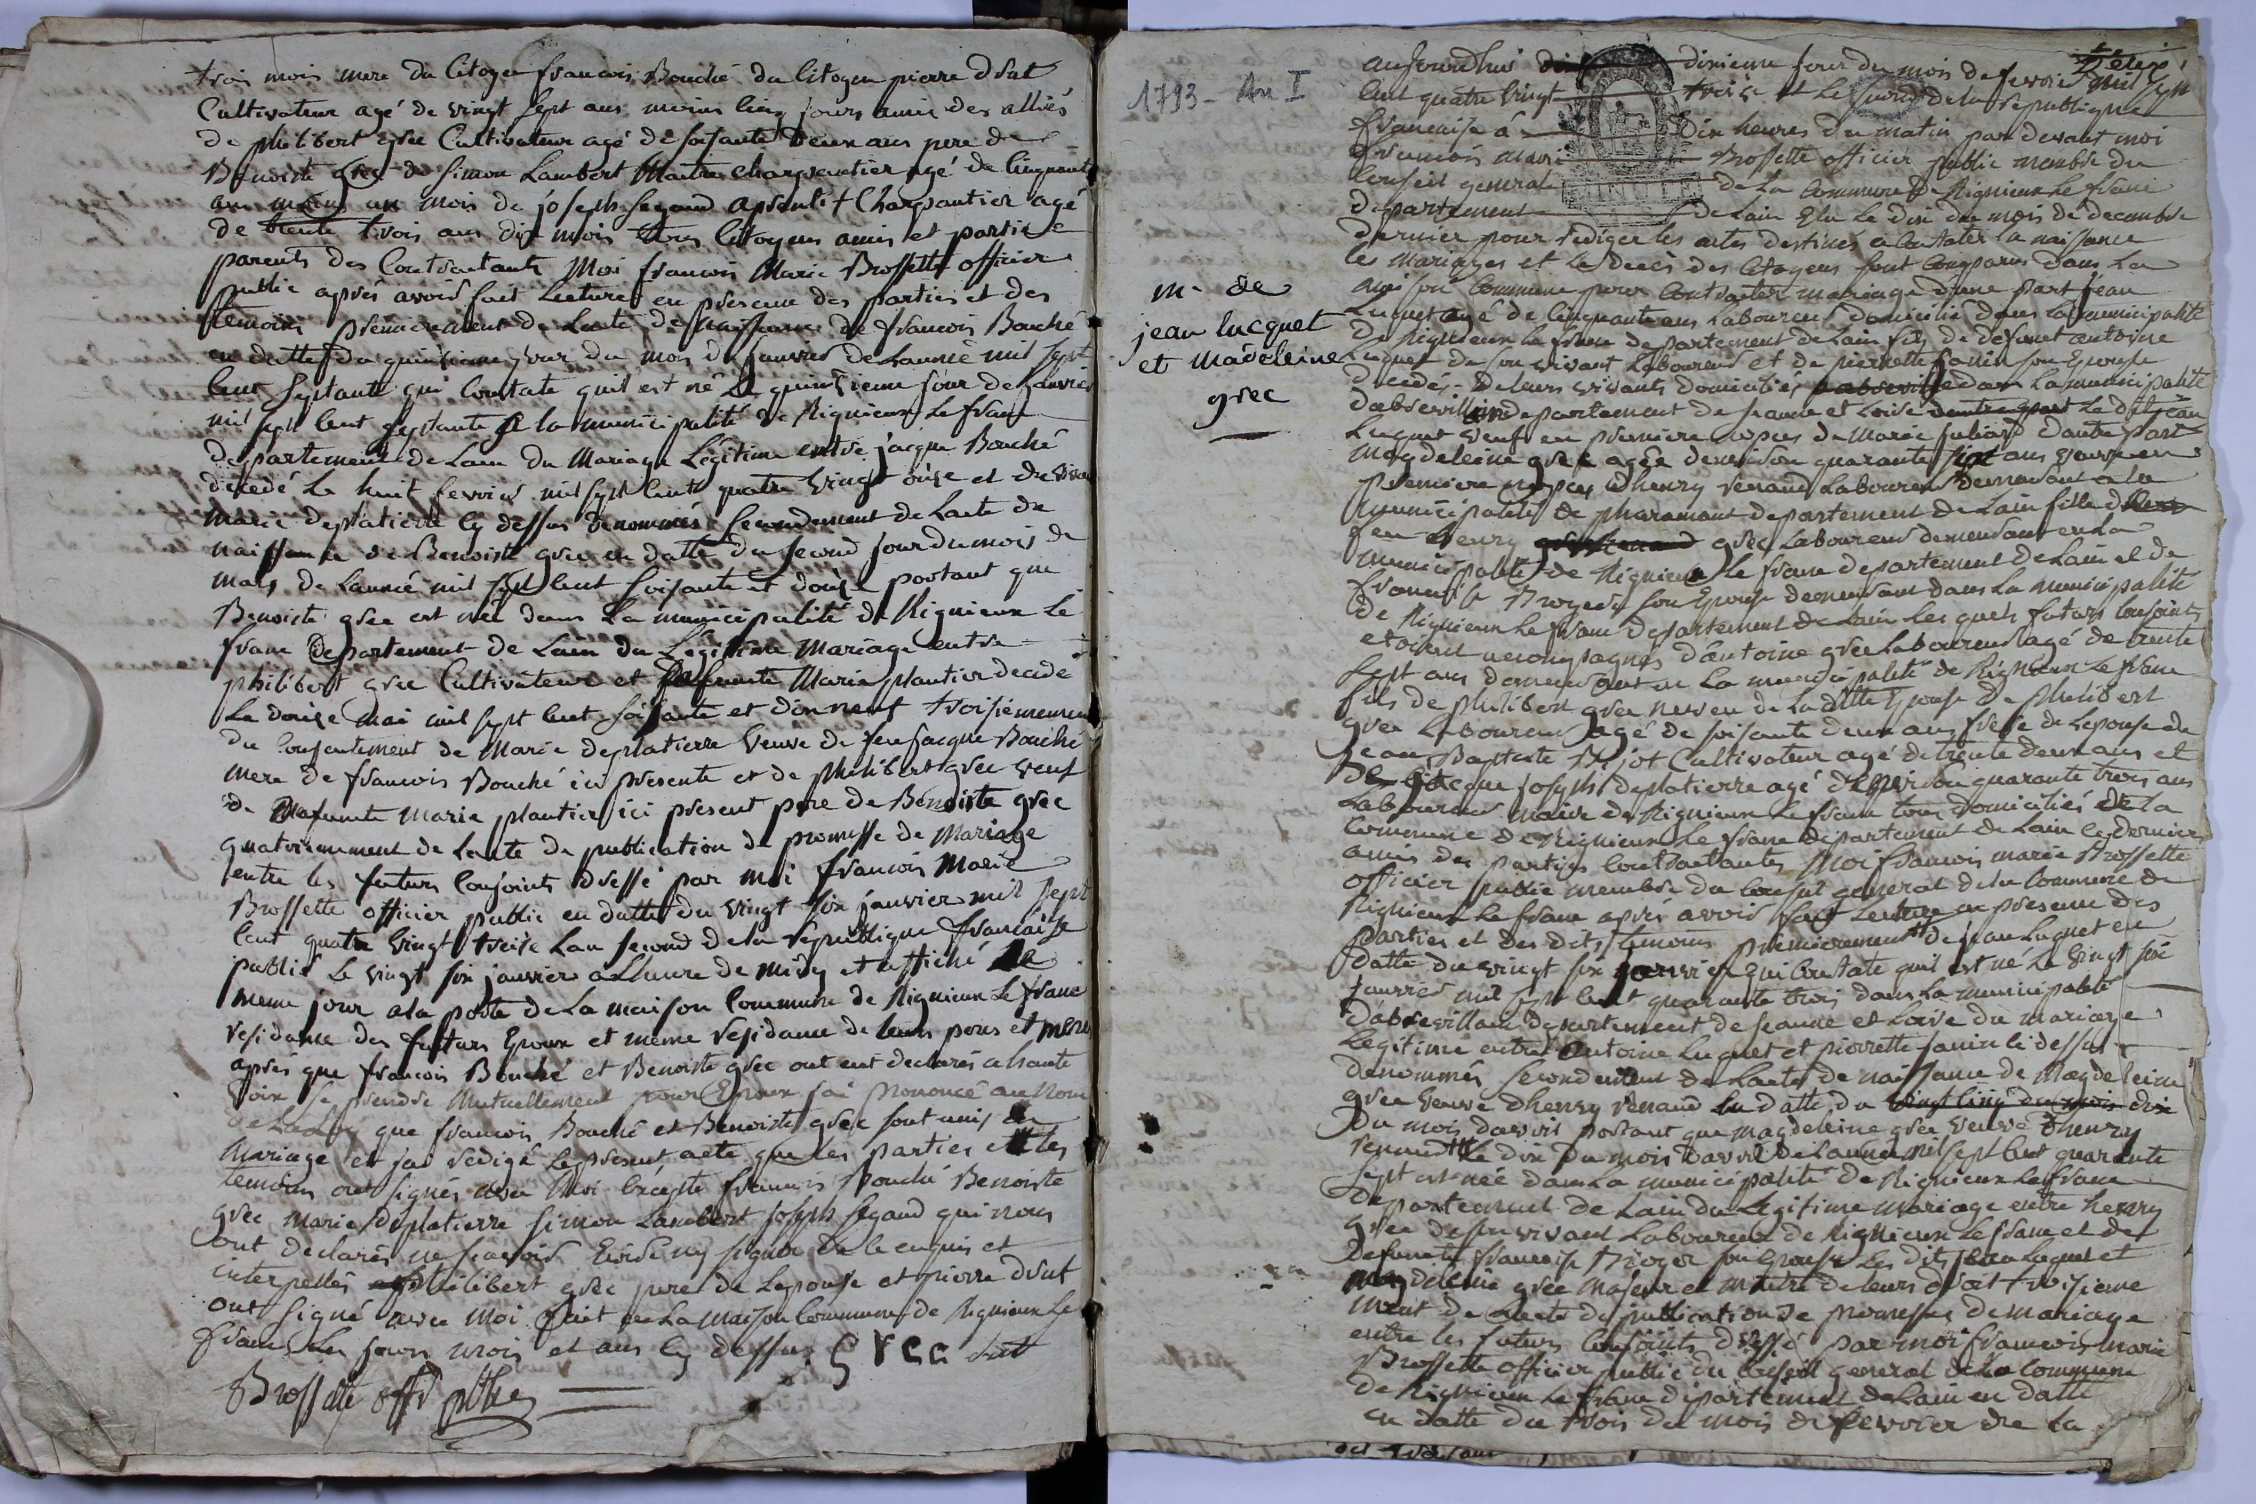 trois mois mere du Citoyen francois Bouché du Citoyen pierre drut
Cultivateur agé de vingt sept ans moins cinq jours amis des alliés
de philibert grec Cultivateur agé de soisante deux ans pere de
Benoiste grec de simon Lambert Maitre charpentier agé de cinquante
ans moins un mois de joseph segaud Charpantier agé
de trente trois ans dix mois tous Citoyens amis et partie
parents des Contractants Moi francois Marie Brossette officier
public aprés avoir fait Lecture en presence des parties et des
temoins premierement de Lacte de naissance de francois Bouché
en datte du quinsieme jour du mois de janvier de Lanneé mil sept
cent septante qui Constate quil est né Le quinsieme jour de janvier
mil sept cent septante a la municipalité de Rignieux Le franc
departement de Lain du Mariage Légitime entre jacque Bouché
décedé Le huit fevrier mil sept cent quatre vingt onze et de
marie deplatierre cy dessus denommés secondement de Lacte de
naissance de Benoiste grec en datte du second jour du mois de
mars de Lanneé mil sept cent soisante et douze portant que
Benoiste grec est neé dans La municipalité de Rignieux Le
franc departement de Lain du Legitime Mariage entre
philibert grec Cultivateur et defunte Marie plantier decedé
Le douze mai mil sept cent soisante et dix neuf troisiemement
du Consentement de Marie deplatierre veuve de feu jacque Bouché
mere de francois Bouché ici presente et de philibert grec veuf
de defunte Marie plantier ici present pere de Benoiste grec
quatriemement de Lacte de publication de promesse de Mariage
entre les futurs Conjoints dressé par moi francois Marie
Brossette officier public en datte du vingt six janvier mil sept
cent quatre vingt treize Lan second de la republique francaise
publié Le vingt six janvier a Lheure de midy et affiché Le
meme jour a la porte de La maison Commune de Rignieux Le franc
residance des futurs Epoux et meme residance de leurs peres et mere
aprés que francois Bouché et Benoiste grec ont eut declarés a haute
voix se prendre Mutuellement pour Epoux jai prononcé au nom
de La Loy que francois Bouché et Benoiste grec sont unis en
Mariage et jai redigé le present acte que Les parties et Les
temoins ont signés avec Moi Excepté francois Bouché Benoiste
grec marie deplatierre simon Lambert joseph segaud qui nous
ont declarés ne scavoir Ecrire ny signer de ce enquis et
interpellés philibert grec pere de Lepouse et pierre drut
ont signé avec moi fait en La maison Commune de Rignieux Le
franc Les jours mois et ans cy dessus Grec drut
Brossette offr pbl
1793 - An I
m. de
jean lucquet
et madeleine
grec
aujourdhui dixieme jour du mois de fevrier mil sept
cent quatre vingt treize et Le second de la republique
francaise a dix heures du matin par devant moi
francois marie Brossette officier public membre du
Conseil general de La Commune de Rignieux Le franc
departement de Lain Elu Le dix du mois de decembre
dernier pour rediger les actes destinés a Constater la naissance
les mariages et Le decés des Citoyens sont Comparus dans La
maison Commune pour Contracter mariage dune part jean
Luquet agé de Cinquante ans Laboureur domicilié dans La municipalité
de Rignieux Le franc departement de Lain fils de defunt antoine
Luquet de son vivant Laboureur et de pierrette son Epouse
decedés de leurs vivants domiciliés dans La municipalité
departement de seaune et Loire Le dit jean
Luquet veuf en premiere nopces de Marie dautre part
magdeleine grec agée denviron quarante six ans veuve en
premiere nopces dhenry renaud Laboureur demeurant a la
municipalité de departement de Lain fille de
feu henry grec Laboureur demeurant en La
municipalité de Rignieux Le franc departement de Lain et de
francoise son Epouse demeurant dans La municipalité
de Rignieux Le franc departement de Lain Les quels futurs Conjoints
etoient accompagnés dantoine grec Laboureur agé de trente
sept ans demeurant en La municipalité de Rignieux Le franc
fils de philibert grec neveu de La ditte Epouse de philibert
grec Laboureur agé de soisante deux ans frere de Lepouse de
jean Baptiste Cultivateur agé de trente deux ans et
de jacque joseph deplatierre agé denviron quarante trois ans
Laboureur maire de Rignieux Le franc tous domiciliés de La
Commune de Rignieux Le franc departement de Lain ces derniers
amis des parties Contractantes Moi francois marie Brossette
officier public membre du Conseil general de la Commune de
Rignieux Le franc aprés avoir fait Lecture en presence des
parties et des dits temoins premierement de jean Luquet en
datte du vingt six janvier qui Constate quil est né Le vingt six
janvier mil sept cent quarante trois dans La municipalité
departement de seaune et Loire du mariage
Legitime entre antoine Luquet et pierrette ci dessus
denommés secondement de Lacte de naissance de Magdeleine
grec veuve dhenry renaud en datte du dix
du mois davril portant que magdeleine grec veuve dhenry
renaud Le dix du mois davril de Lanneé mil sept cent quarante
sept est neé dans La municipalité de Rignieux Le franc
departement de Lain du Legitime mariage entre henry
grec de son vivant Laboureur de Rignieux Le franc et de
defunte francoise son Epouse Les dits jean Luquet et
magdeleine grec Majeur et Maitre de leurs droit troisieme
ment de Lacte de publication de promesses de mariage
entre les futurs Conjoints dressé par moi francois marie
Brossette officier public du Conseil general de La Commune
de Rignieux Le franc departement de Lain en datte
en datte du trois du mois de fevrier de La